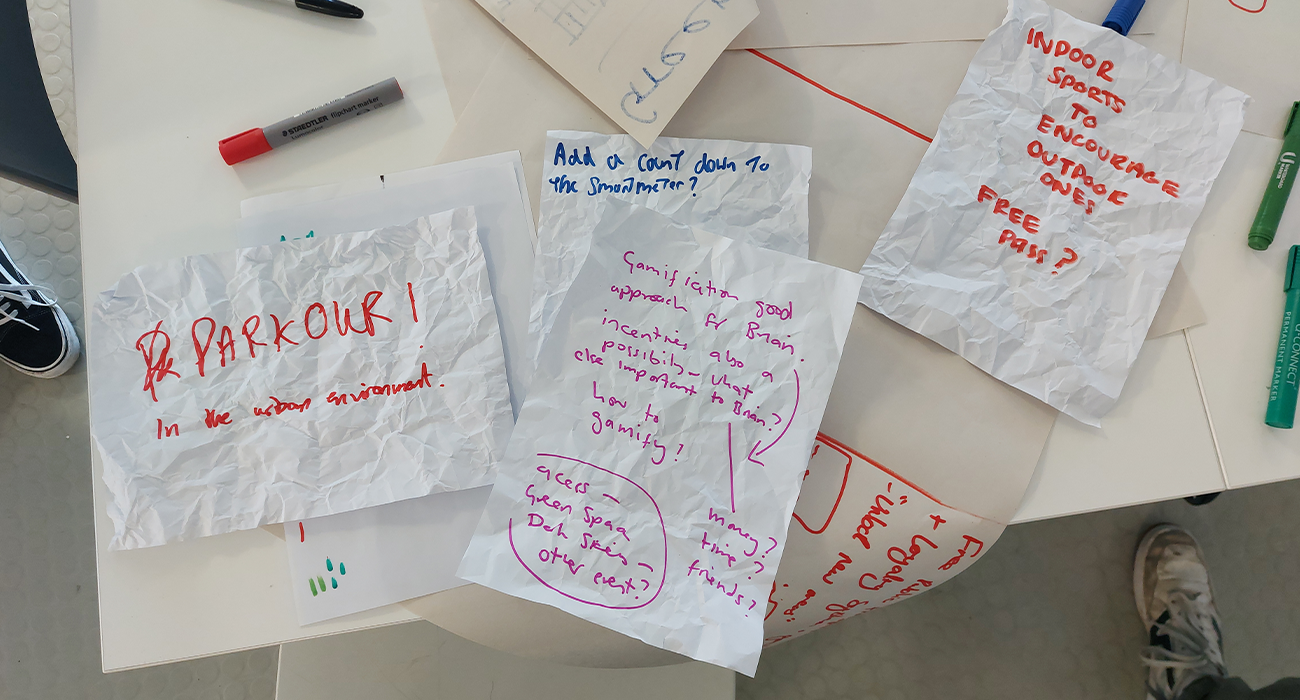 STAEDTLER flipchart marker
Add a count down to
the Smartmeter?
PARKOUR!
In the urban environment.
Gamification good
approach for Brian.
incentives also a
possibility - what
else important to Brian?
how to
gamify?
access -
Green Space
Dark Skies -
other event?
money?
time?
friends?
INDOOR
SPORTS
TO
ENCOURAGE
OUTDOOR
ONES
FREE
PASS?
+ Loyalty
new
U CONNECT
PERMANENT MARKER